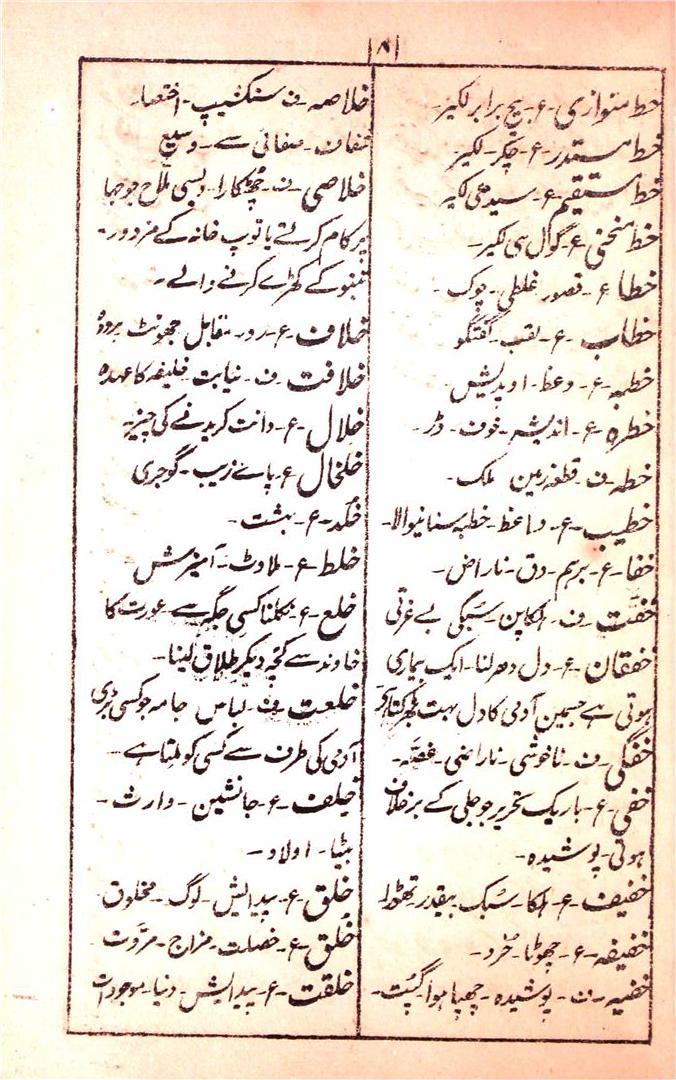 ۸۱
خط متوازی - ع - بیچ برابر لکیر -
خط مستدیر - ع - چکر - لکیر
خط مستقیم - ع - سیدھی لکیر
خط منحنی - ع - گول سی لکیر -
خطا - ع - قصور - غلطی - چوک -
خطاب - ع - لقب - گفتگو
خطبہ - ع - وعظ - اوپدیش -
خطرہ - ع - اندیشہ - خوف - ڈر -
خطہ - ف - قطعہ زمین - ملک -
خطیب - ع - واعظ - خطبہ سنانیوالا -
خفا - ع - برہم - دق - ناراض -
خفت - ف - ہلکاپن - سبکی - بے عزتی
خفقان - ع - دل دھرلنا - ایک بیماری
ہوتی ہے جسمین آدمی کا دل بہت گھبراتا ہے
خفگی - ف - ناخوشی - ناراضی - غصہ -
خفی - ع - باریک تحریر جو جلی کے برخلاف
ہوتی - پوشیدہ -
خفیف - ع - ہلکا - سبک - بیقدر - تھوڑا
خفیفہ - ع - چھوٹا - خرد -
خفیہ - ف - پوشیدہ - چھپا ہوا - گپت -
خلاصہ - ف - سنکشیپ - اختصار -
صفائی سے - وسیع
خلاصی - ف - چھٹکارا - دیسی ملاح جو جہا
پر کام کرتے یا توپ خانہ کے مزدور -
تنبو کے کھڑے کرنے والے -
خلاف - ع - رو - مقابل - جھونٹ -
خلافت - ف - نیابت - خلیفہ کا عہدہ
خلال - ع - دانت کریدنے کی چیز
خلخال - ع - پاے زیب - گوجری
خلد - ع - بہشت -
خلط - ع - ملاوٹ - آمیزش
خلع - ع - نکلنا کسی جگہ سے - عورت کا
خاوند سے کچھ دیکر طلاق لینا -
خلعت - ف - لباس - جامہ جو کسی بڑی
آدمی کی طرف سے کسی کو ملتا ہے -
خلف - ع - جانشین - وارث -
بیٹا - اولاد -
خلق - ع - پیدایش - لوگ - مخلوق -
خلق - ع - خصلت - مزاج - مروت
خلقت - ع - پیدایش - دنیا - موجودات